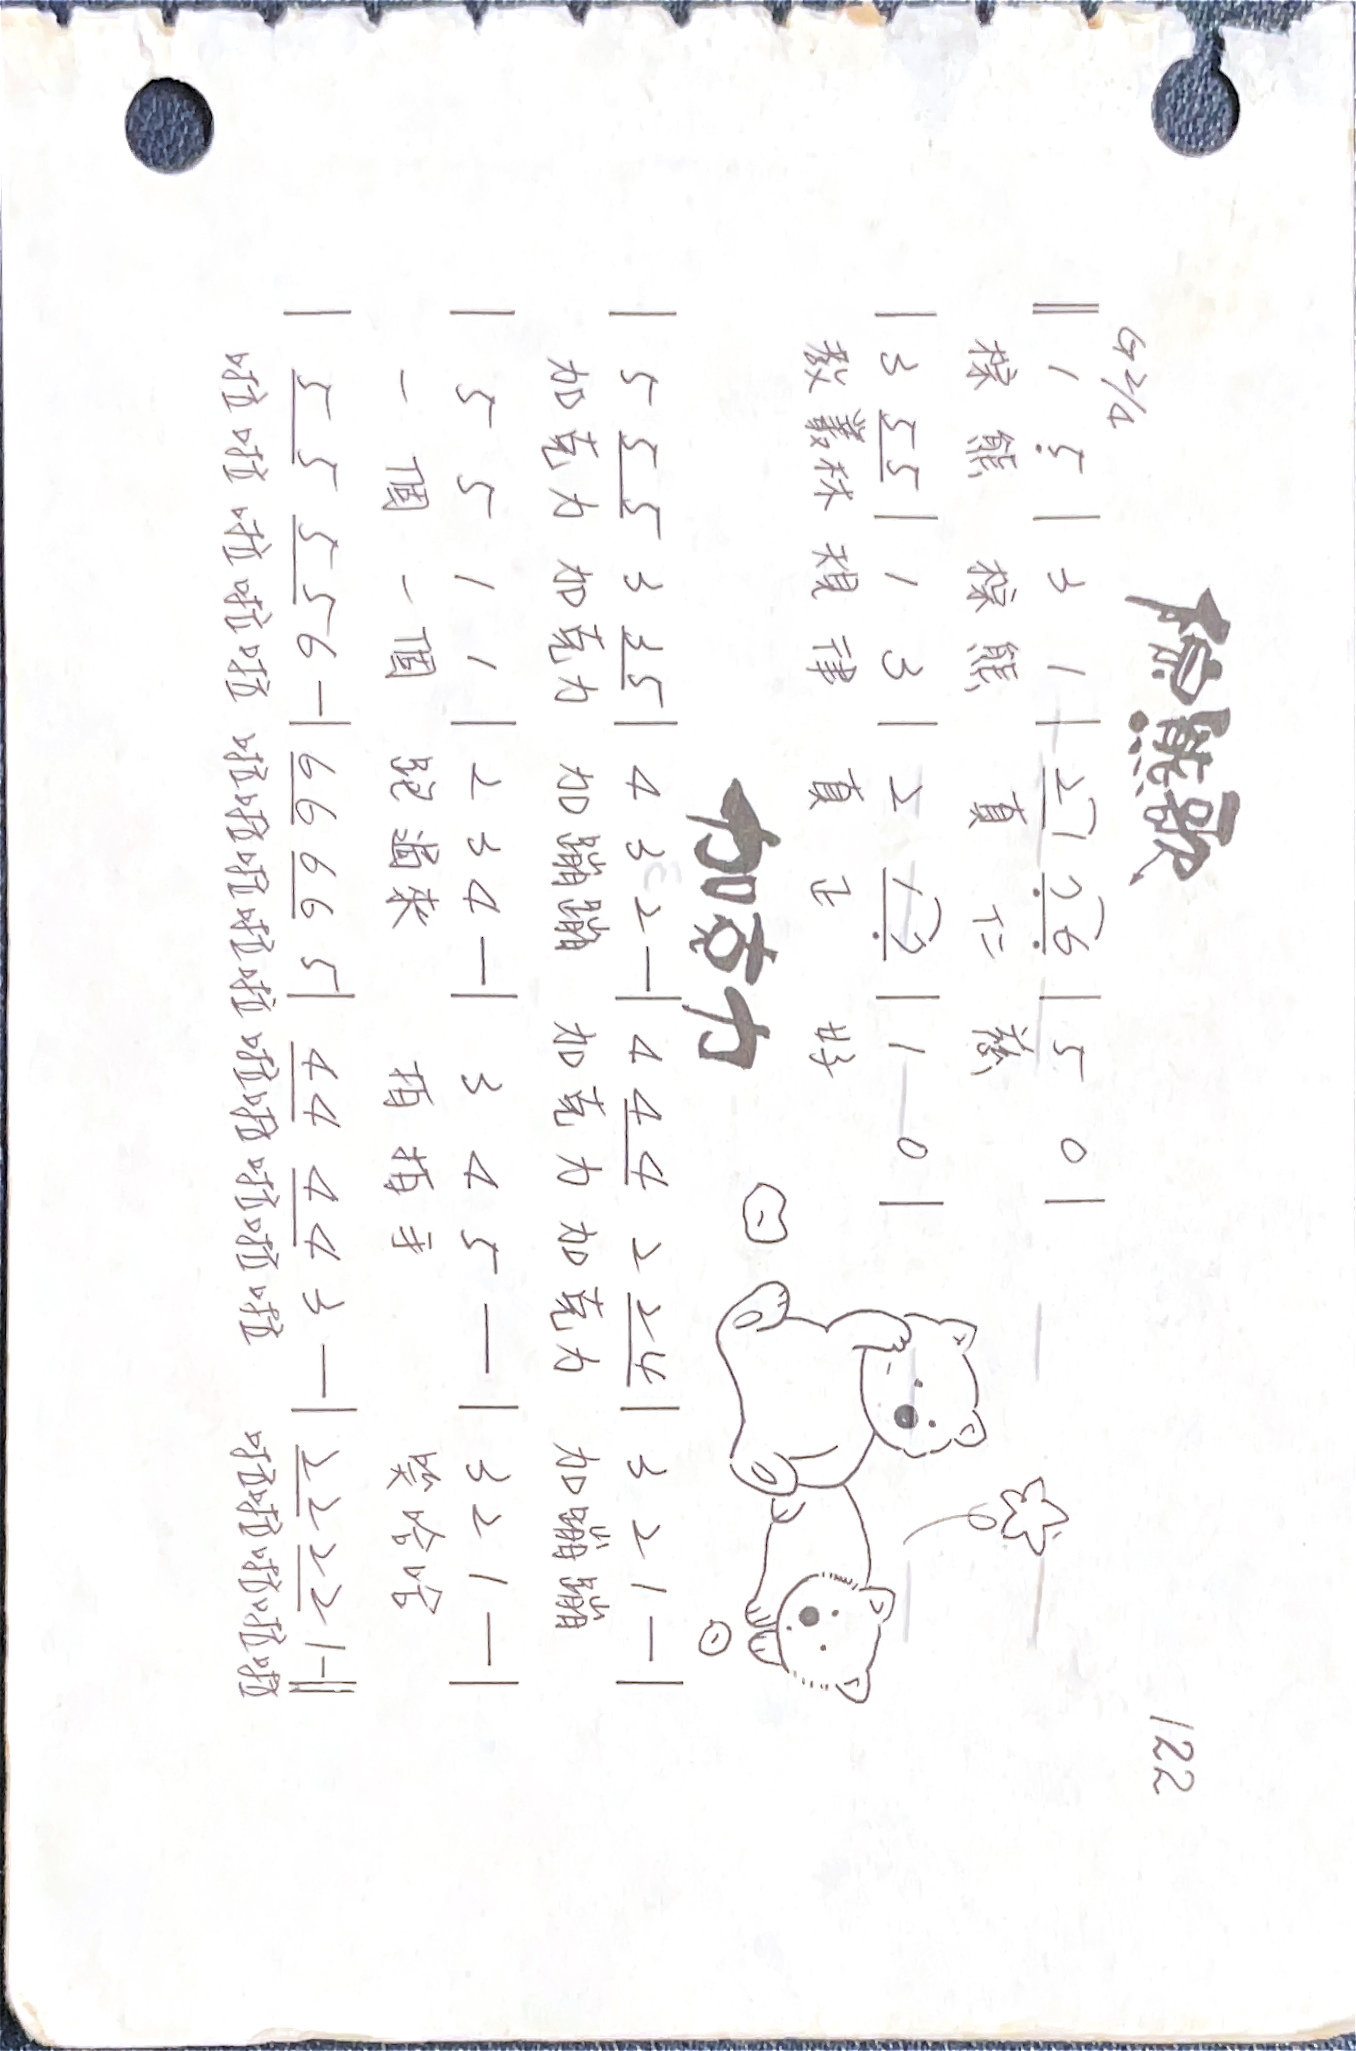 棕熊歌
122
G 2/4
‖ 1 5̣ | 3 1 | 2 1 7̣ 6̣ | 5 0 |
棕 熊 棕 熊 真 仁 慈
| 3 5 5 | 1 3 | 2 1 7̣ | 1 0 |
教 叢 林 規 律 真 正 好
加克力
| 5 5 5 3 3 5 | 4 3 2 — | 4 4 4 2 2 4 | 3 2 1 — |
加 克 力 加 克 力 加 蹦 蹦 加 克 力 加 克 力 加 蹦 蹦
| 5 5 1 1 | 2 3 4 — | 3 4 5 — | 3 2 1 — |
一 個 一 個 跑 過 來 拍 拍 手 笑 哈 哈
| 5 5 5 5 6 — | 6 6 6 6 5 | 4 4 4 4 3 — | 2 2 2 2 1 — ‖
啦 啦 啦 啦 啦 啦 啦 啦 啦 啦 啦 啦 啦 啦 啦 啦 啦 啦 啦 啦